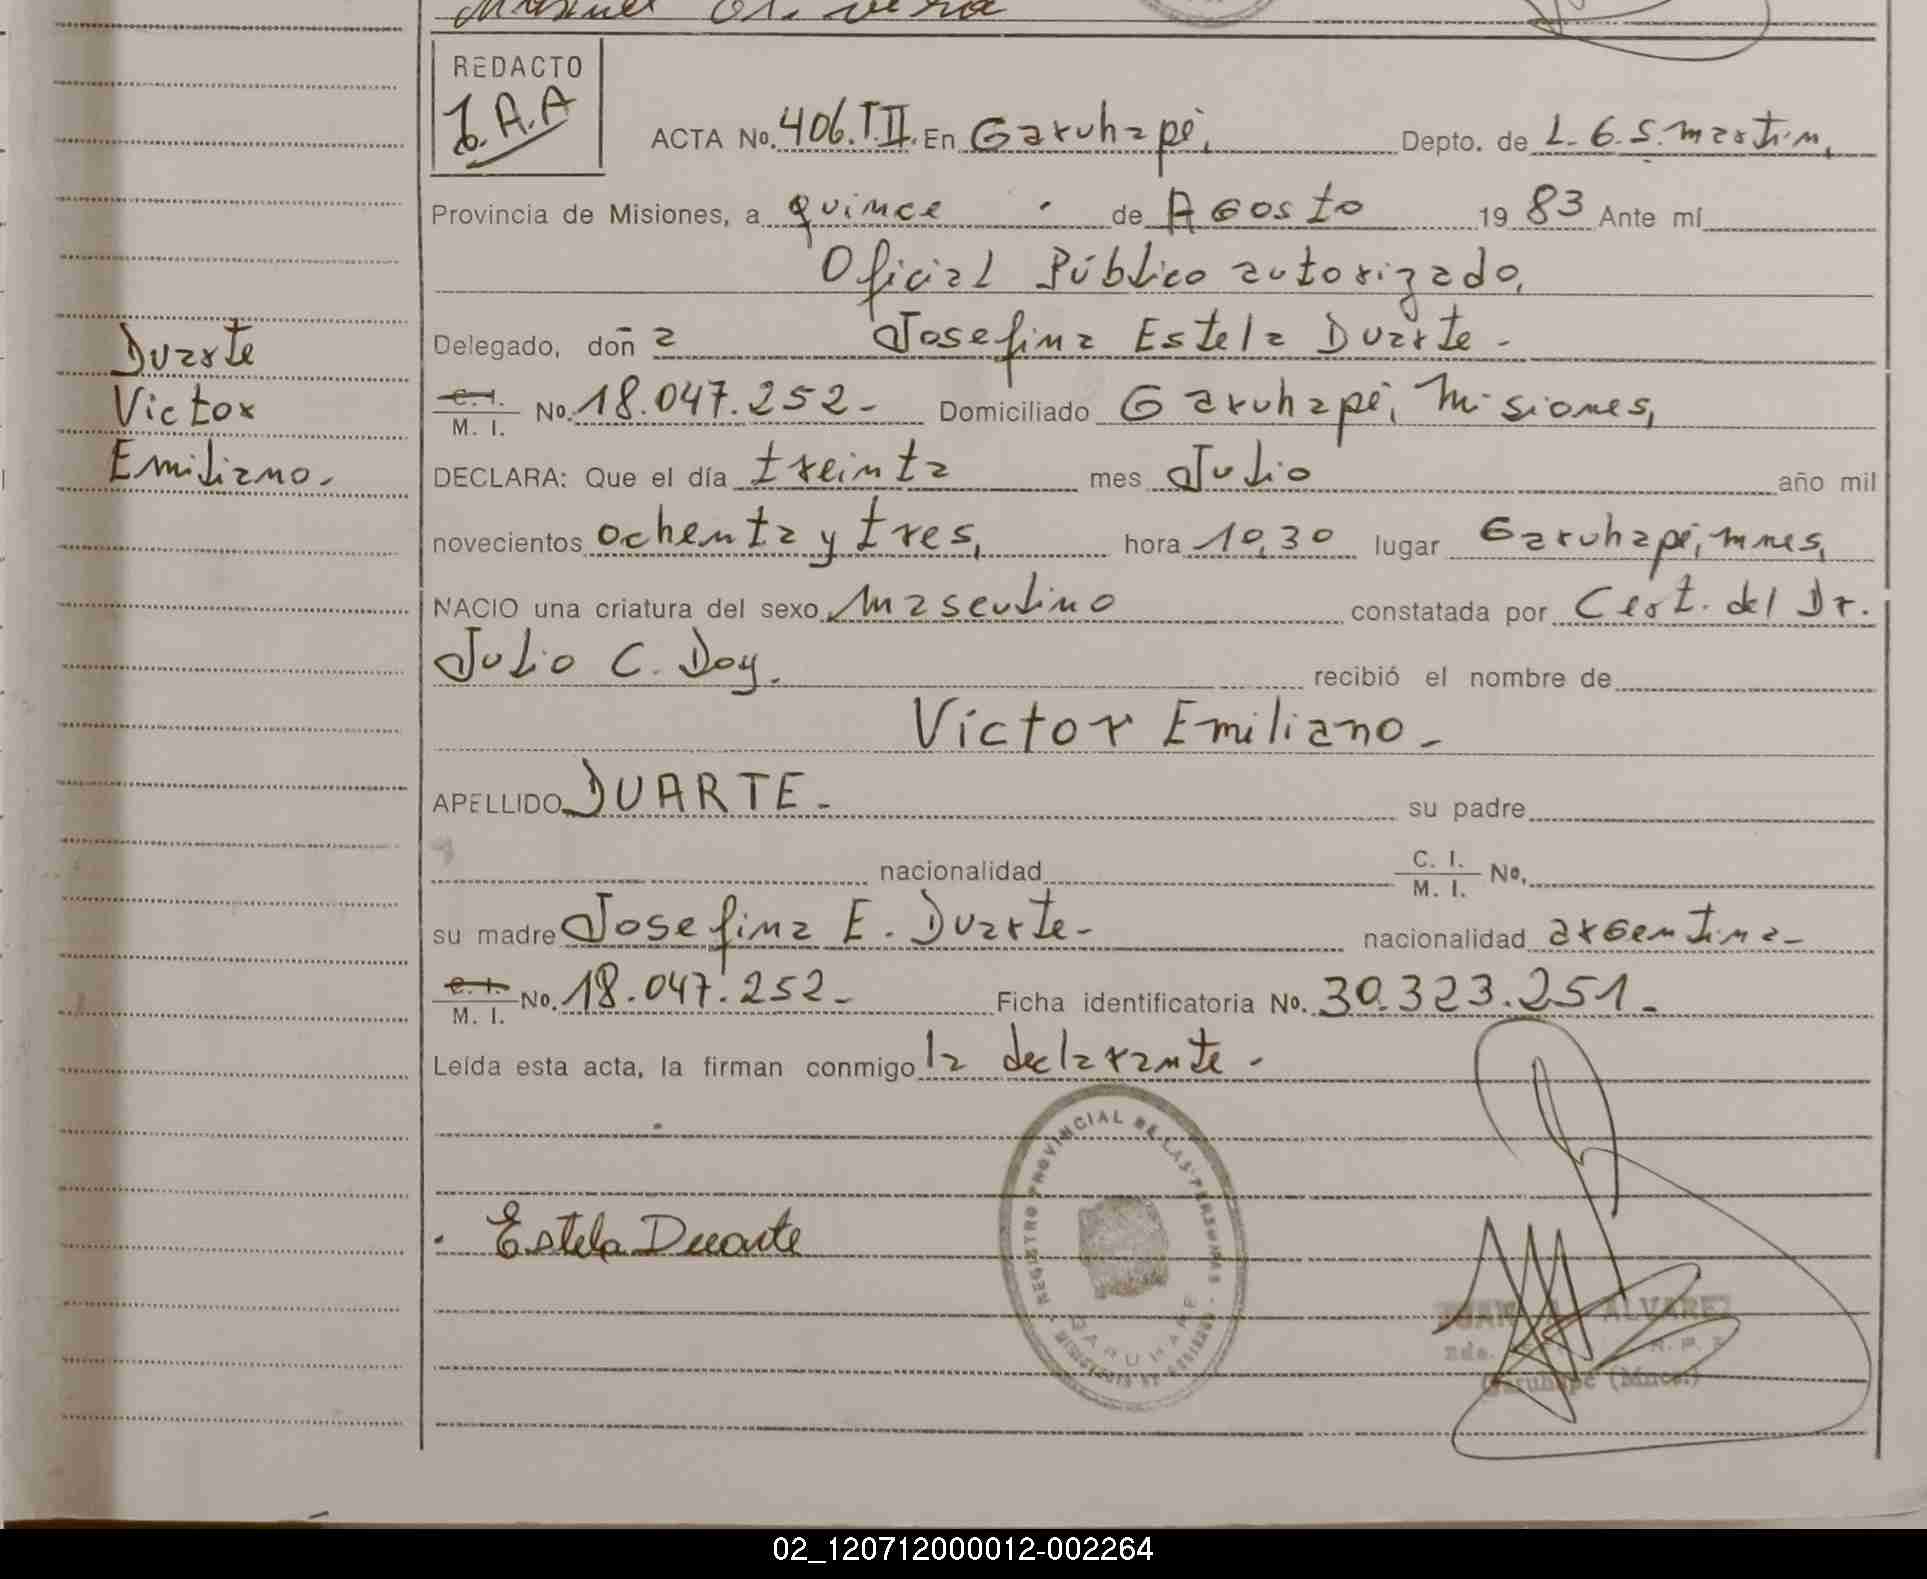 REDACTO
J.A.A
ACTA No. 406.T.II. En Garuhapé, Depto. de L.G.S. Martin,
Provincia de Misiones, a quince de Agosto 19 83 Ante mí
Oficial Público autorizado,
Delegado, doñ a Josefina Estela Duarte.-
C. I. / M. I. No. 18.047.252- Domiciliado Garuhapé, Misiones,
DECLARA: Que el día treinta mes Julio año mil
novecientos ochenta y tres, hora 10,30 lugar Garuhapé, mnes,
NACIO una criatura del sexo masculino constatada por Cert. del Dr.
Julio C. Doy. recibió el nombre de
Víctor Emiliano.-
APELLIDO DUARTE.- su padre
nacionalidad C. I. / M. I. No.
su madre Josefina E. Duarte.- nacionalidad argentina-
C. I. / M. I. No. 18.047.252.- Ficha identificatoria No. 30.323.251.-
Leída esta acta, la firman conmigo la declarante.-
Duarte
Victor
Emiliano.-
Estela Duarte
REGISTRO PROVINCIAL DE LAS PERSONAS
GARUHAPE
JUAN A. ALVAREZ
Garuhapé (Mnes.)
02_120712000012-002264